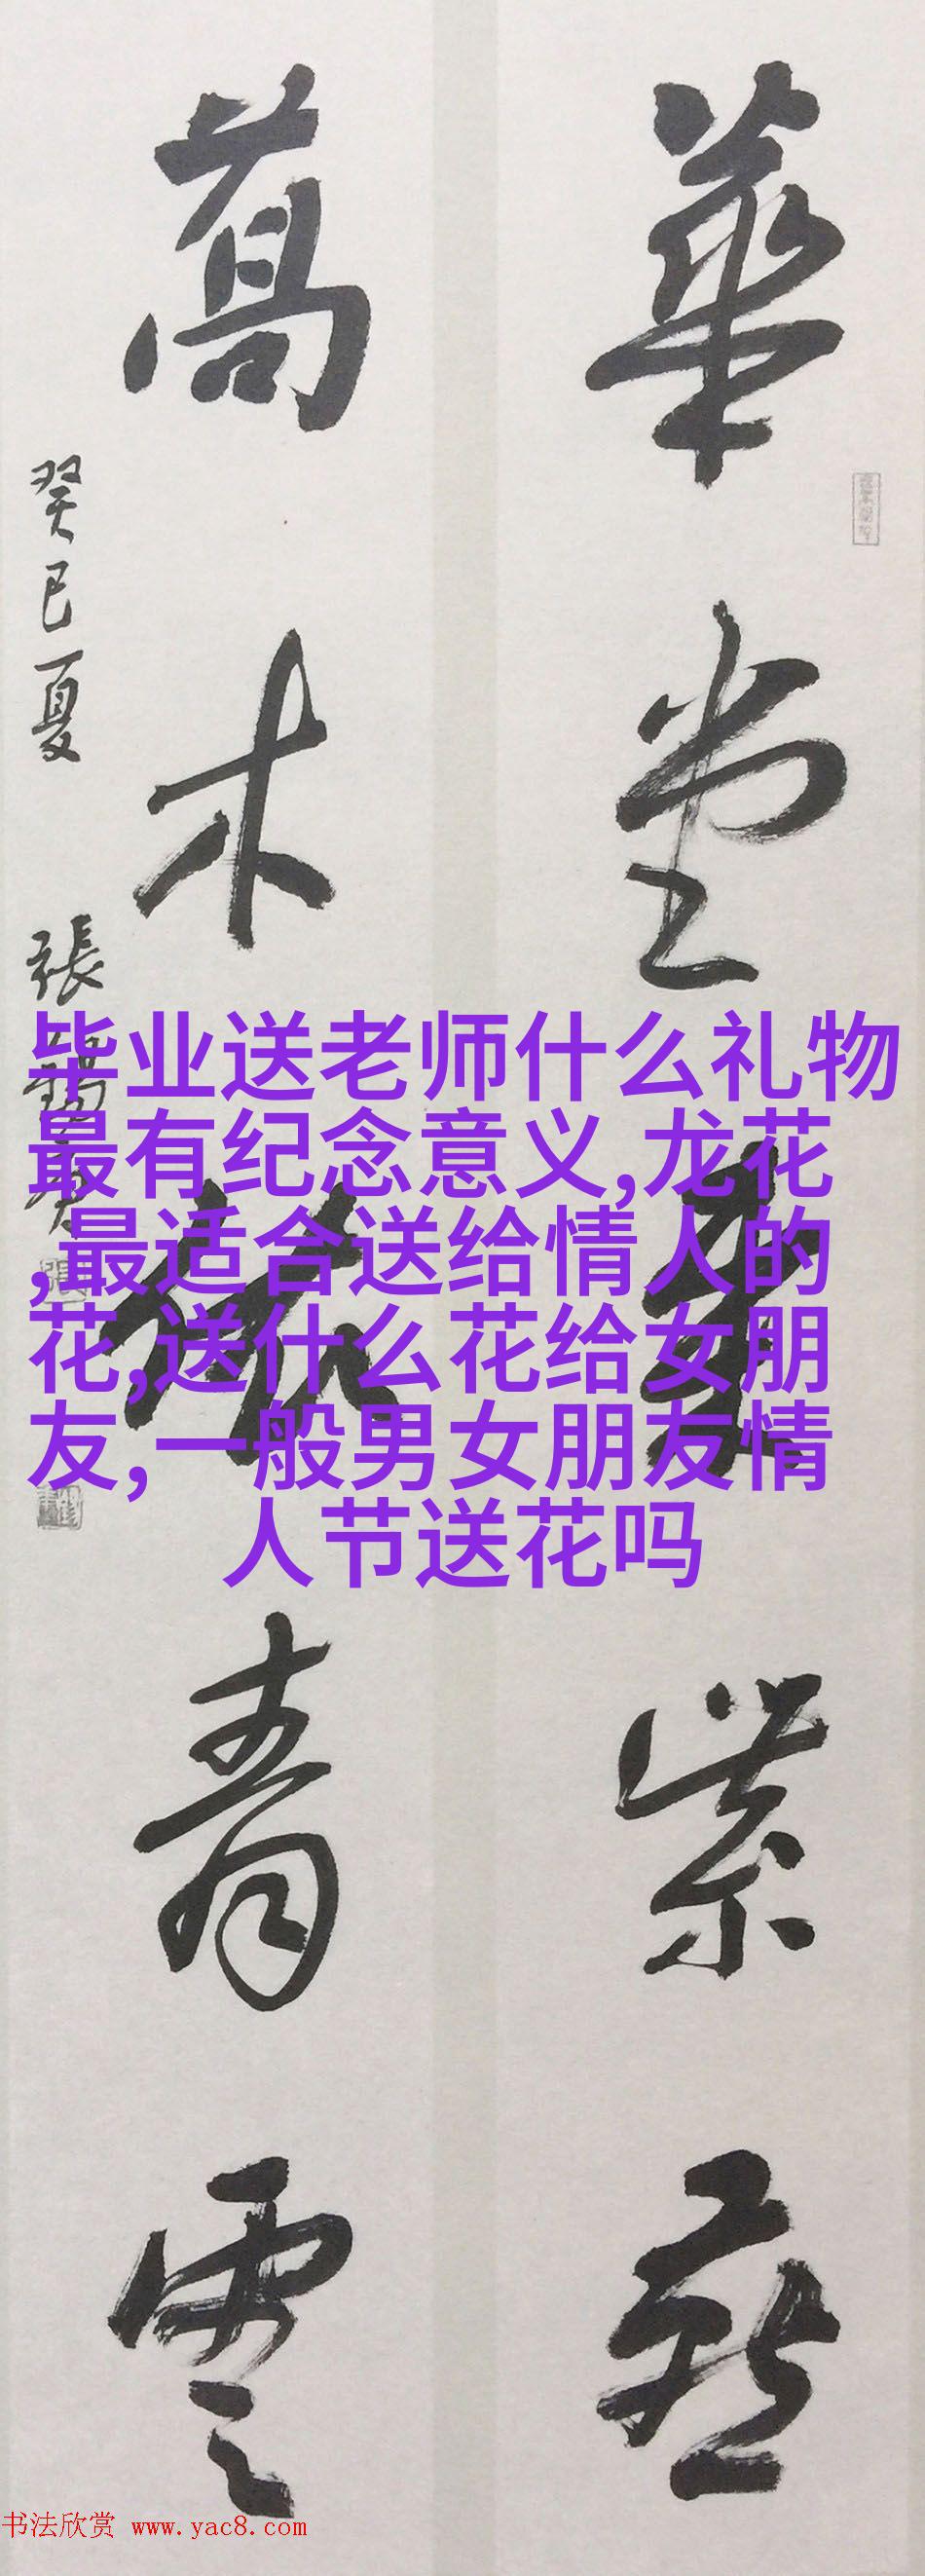 華堂
紫燕
萬木
青雲
癸巳夏
張
毕业送老师什么礼物
最有纪念意义,龙花
,最适合送给情人的
花,送什么花给女朋
友,一般男女朋友情
人节送花吗
书法欣赏 www.yac8.com